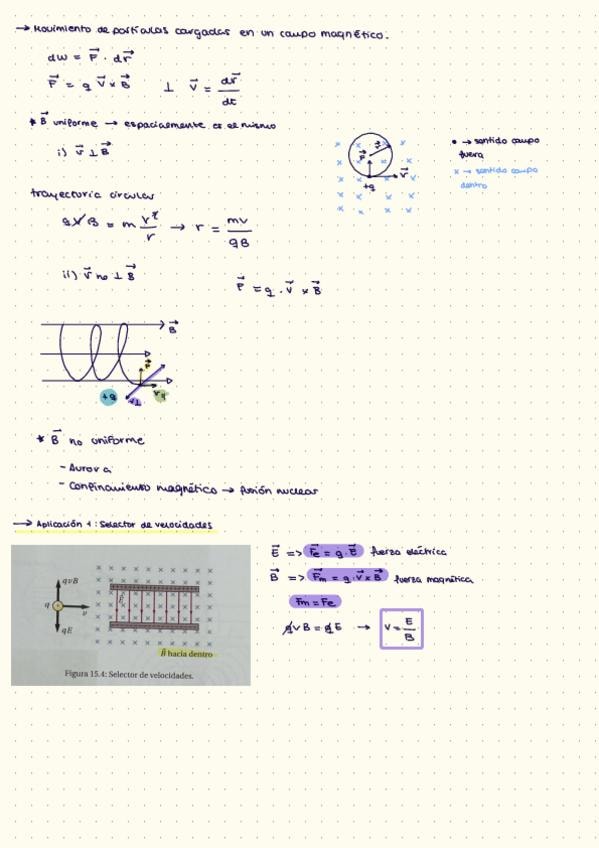 → Movimiento de partículas cargadas en un campo magnético.
dw = F⃗ · dr⃗
F⃗ = q v⃗ × B⃗ ⊥ v⃗ = dr⃗/dt
* B⃗ uniforme → espacialmente es el mismo
i) v⃗ ⊥ B⃗
• → sentido campo
fuera
x → sentido campo
dentro
F⃗
r⃗
v⃗
+q
trayectoria circular
qvB = m v²/r → r = mv/qB
ii) v⃗ no ⊥ B⃗
F⃗ = q · v⃗ × B⃗
B⃗
+q v⊥ v∥
* B⃗ no uniforme
- Aurora
- Confinamiento magnético → fusión nuclear
→ Aplicación 1: Selector de velocidades
qvB
q
v
qE
E⃗
B⃗ hacia dentro
Figura 15.4: Selector de velocidades.
E⃗ => F⃗e = q · E⃗ fuerza eléctrica
B⃗ => F⃗m = q · v⃗ × B⃗ fuerza magnética
Fm = Fe
qvB = qE → v = E/B